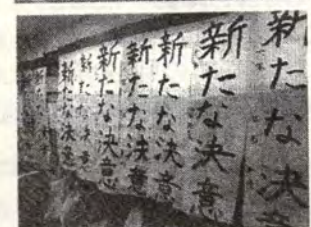 新たな決意
新たな決意
新たな決意
新たな決意
新たな決意
新たな決意
新たな決意